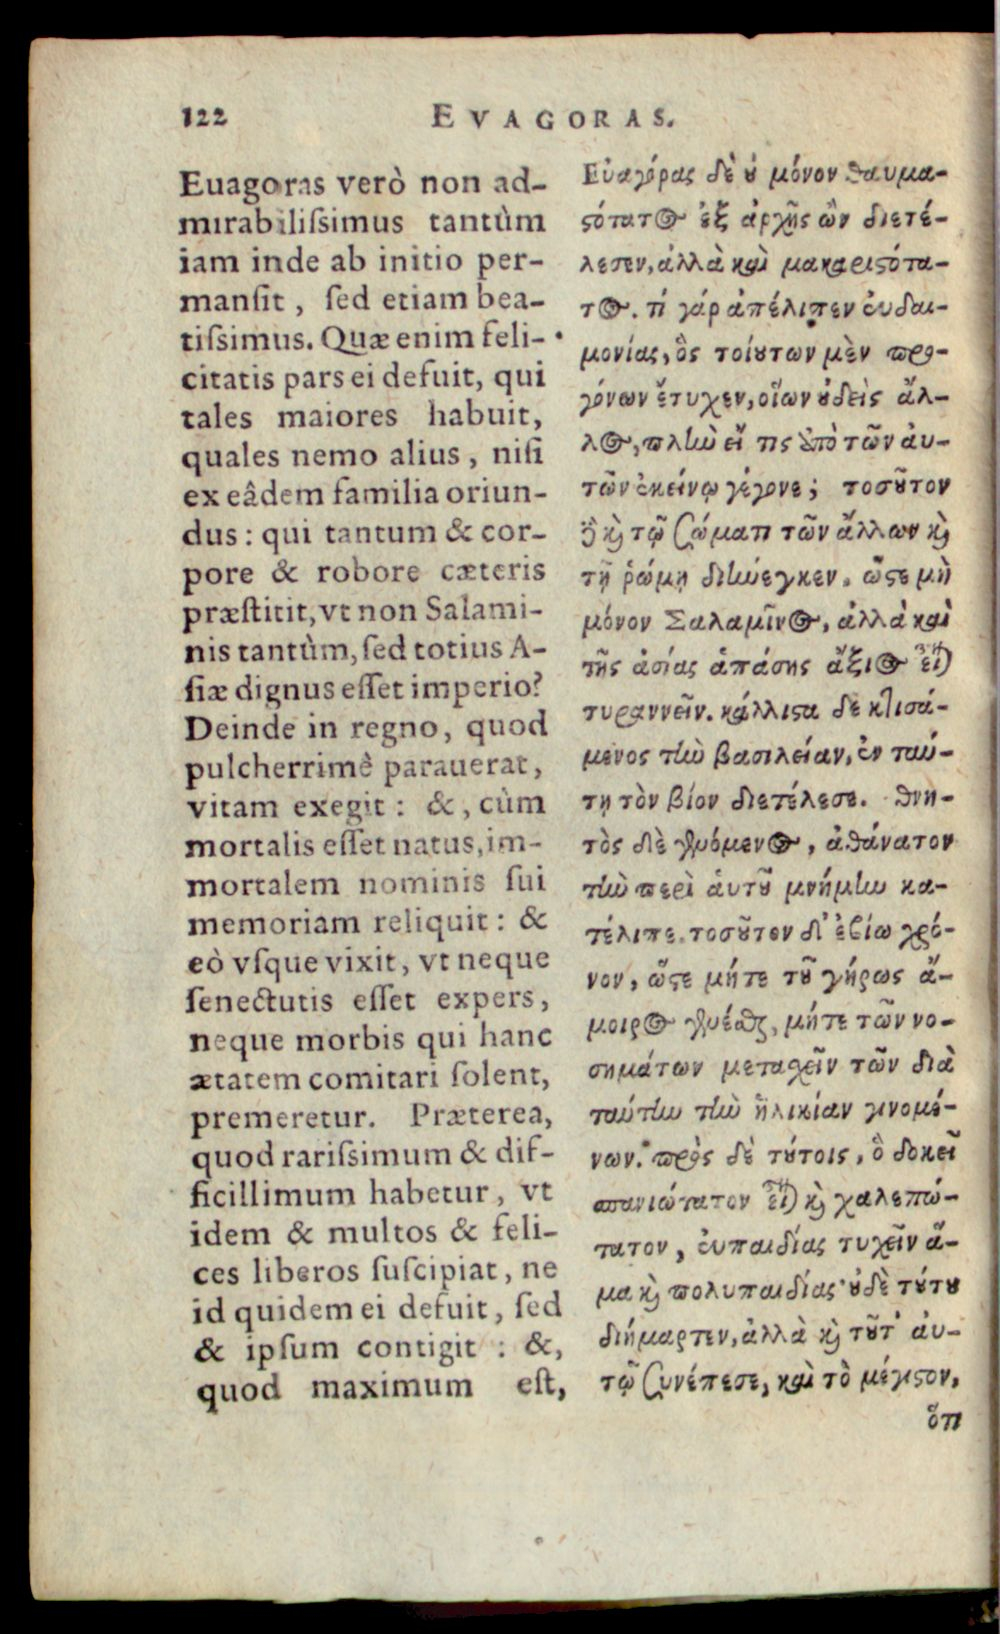 122 EVAGORAS.
Euagoras verò non ad-
mirabiliſsimus tantùm
iam inde ab initio per-
manſit, ſed etiam bea-
tiſsimus. Quæ enim feli-
citatis pars ei defuit, qui
tales maiores habuit,
quales nemo alius, niſi
ex eâdem familia oriun-
dus: qui tantum & cor-
pore & robore cæteris
præſtitit, vt non Salami-
nis tantùm, ſed totius A-
ſiæ dignus eſſet imperio?
Deinde in regno, quod
pulcherrimè parauerat,
vitam exegit: &, cùm
mortalis eſſet natus, im-
mortalem nominis ſui
memoriam reliquit: &
eò vſque vixit, vt neque
ſenectutis eſſet expers,
neque morbis qui hanc
ætatem comitari ſolent,
premeretur. Præterea,
quod rariſsimum & dif-
ficillimum habetur, vt
idem & multos & feli-
ces liberos ſuſcipiat, ne
id quidem ei defuit, ſed
& ipſum contigit: &,
quod maximum eſt,
Εὐαγόρας δὲ ȣ μόνον θαυμα-
ϛότατος ἐξ ἀρχῆς ὢν διετέ-
λεσεν, ἀλλὰ καὶ μακαριϛότα-
τος. τί γάρ ἀπέλιπεν ἐυδαι-
μονίας, ὃς τοίȣτων μὲν προ-
γόνων ἔτυχεν, οἵων ȣδεὶς ἄλ-
λος, πλὴν εἴ τις ἀπὸ τῶν ἀυ-
τῶν ἐκείνῳ γέγονε; τοσȣ͂τον
δὲ καὶ τῷ σώματι τῶν ἄλλων καὶ
τῇ ῥώμῃ διήνεγκεν. ὥϛε μὴ
μόνον Σαλαμῖνος, ἀλλὰ καὶ
τῆς ἀσίας ἁπάσης ἄξιος εἶναι
τυραννεῖν. κάλλιϛα δε κτισά-
μενος τὴν βασιλείαν, ἐν ταύ-
τῃ τὸν βίον διετέλεσε. θνη-
τὸς δὲ γενόμενος, ἀθάνατον
τὴν περὶ ἁυτȣ͂ μνήμην κα-
τέλιπε. τοσȣ͂τον δ' ἐβίω χρό-
νον, ὥϛε μήτε τȣ͂ γήρως ἄ-
μοιρος γενέσθαι, μήτε τῶν νο-
σημάτων μεταχεῖν τῶν διὰ
ταύτην τὴν ἡλικίαν γινομέ-
νων. πρὸς δὲ τȣ́τοις, ὃ δοκεῖ
σπανιώτατον εἶναι καὶ χαλεπώ-
τατον, ἐυπαιδίας τυχεῖν ἅ-
μα καὶ πολυπαιδίας· ȣδὲ τȣ́τȣ
διήμαρτεν, ἀλλὰ καὶ τȣ͂τ' ἀυ-
τῷ συνέπεσε, καὶ τὸ μέγιϛον,
ὅτι